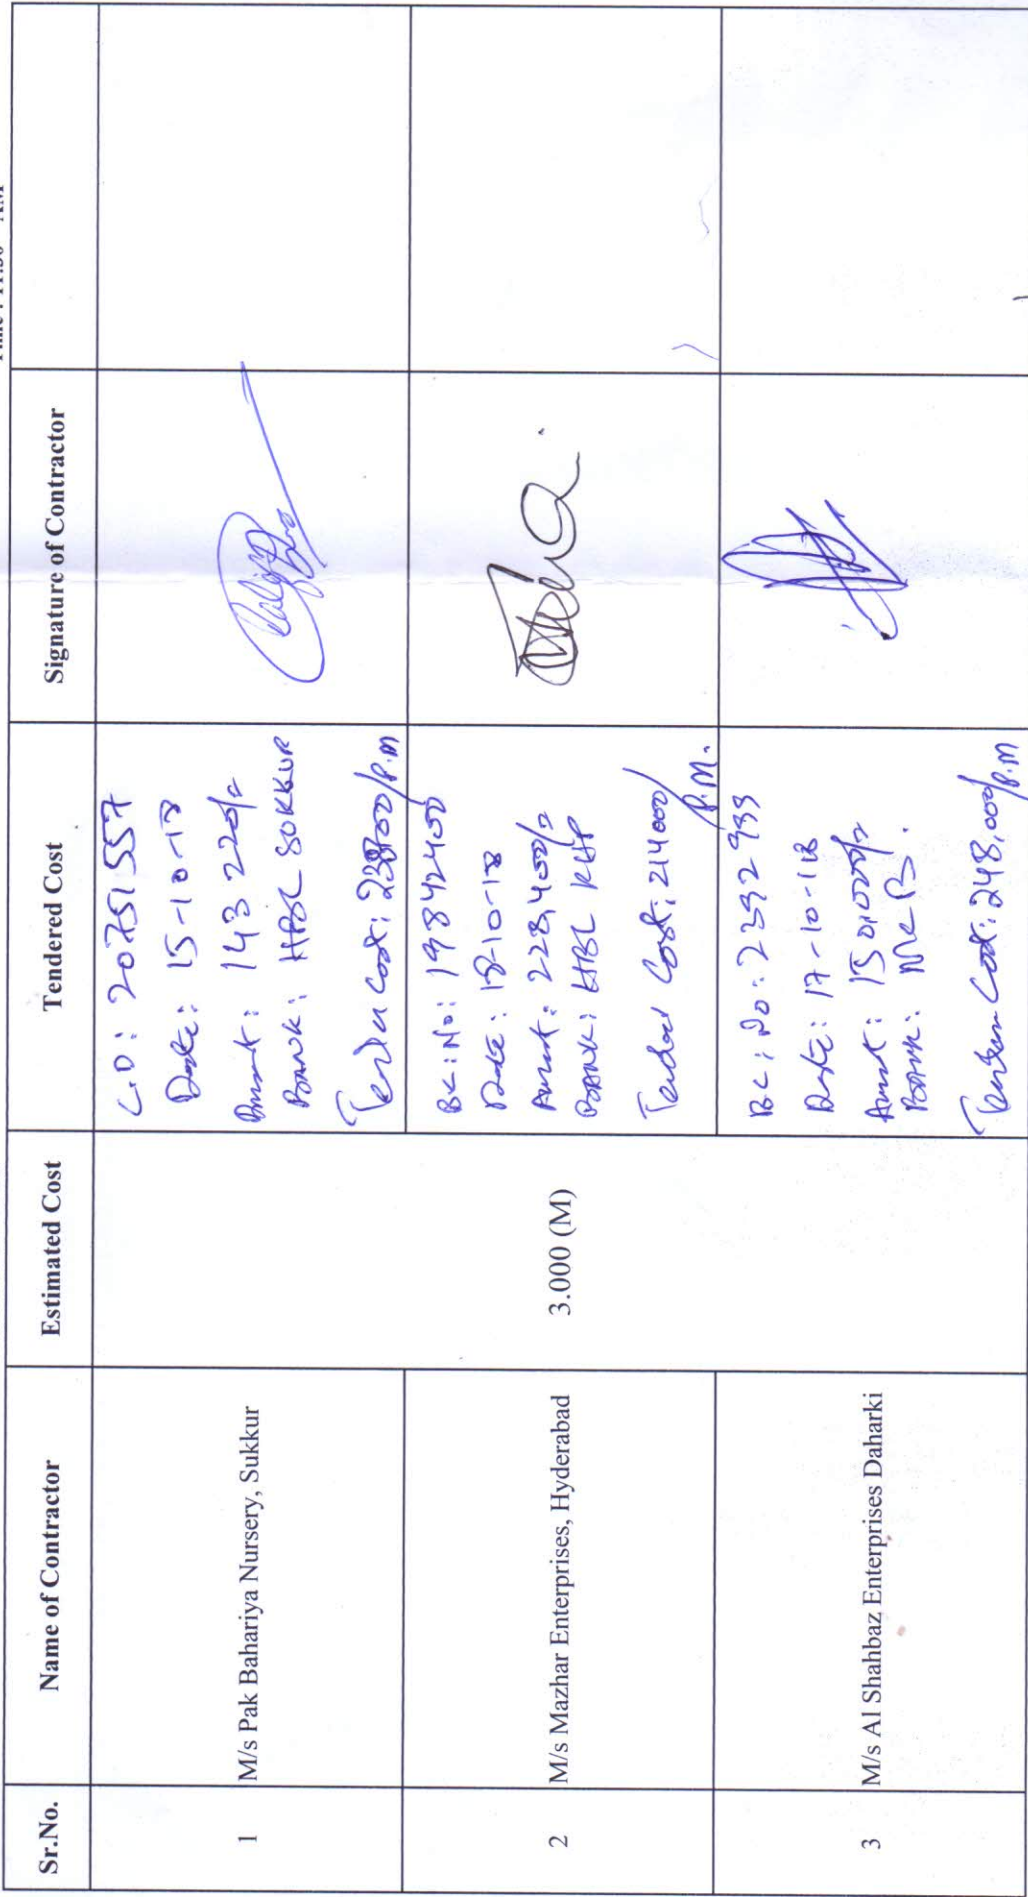 Time : 11:30 AM
Sr.No.
Name of Contractor
Estimated Cost
Tendered Cost
Signature of Contractor
1
M/s Pak Bahariya Nursery, Sukkur
3.000 (M)
C.D: 20751557
Date: 15-10-18
Amnt: 143220/=
Bank: HBL SUKKUR
Tender Cost: /P.M
2
M/s Mazhar Enterprises, Hyderabad
BC: No: 19842400
Date: 18-10-18
Amnt: 228,400/=
Bank: HBL KHP
Tender Cost: 214000/
P.M.
3
M/s Al Shahbaz Enterprises Daharki
BC: No: 2392933
Date: 17-10-18
Amnt: 150,000/=
Bank: MCB.
Tender Cost: 248,000/P.M